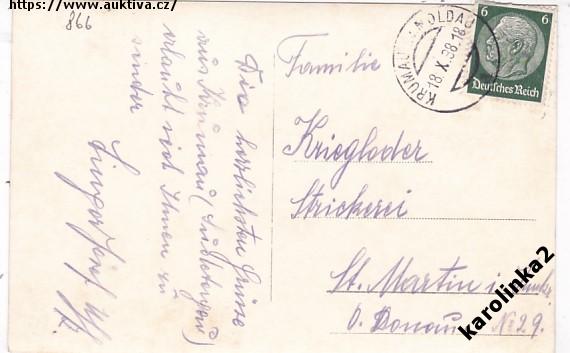 https://www.auktiva.cz/
866
Die herzlichsten Grüsse
aus Krumau (Sudetengau)
erlaubt sich Ihnen zu
senden
Singer Josef
Familie
Kriegloder
Strickerei
St. Martin i.
O. Donau No 29.
KRUMAU A. MOLDAU
18.X.38.18
6 6
Deutsches Reich
karolinka2